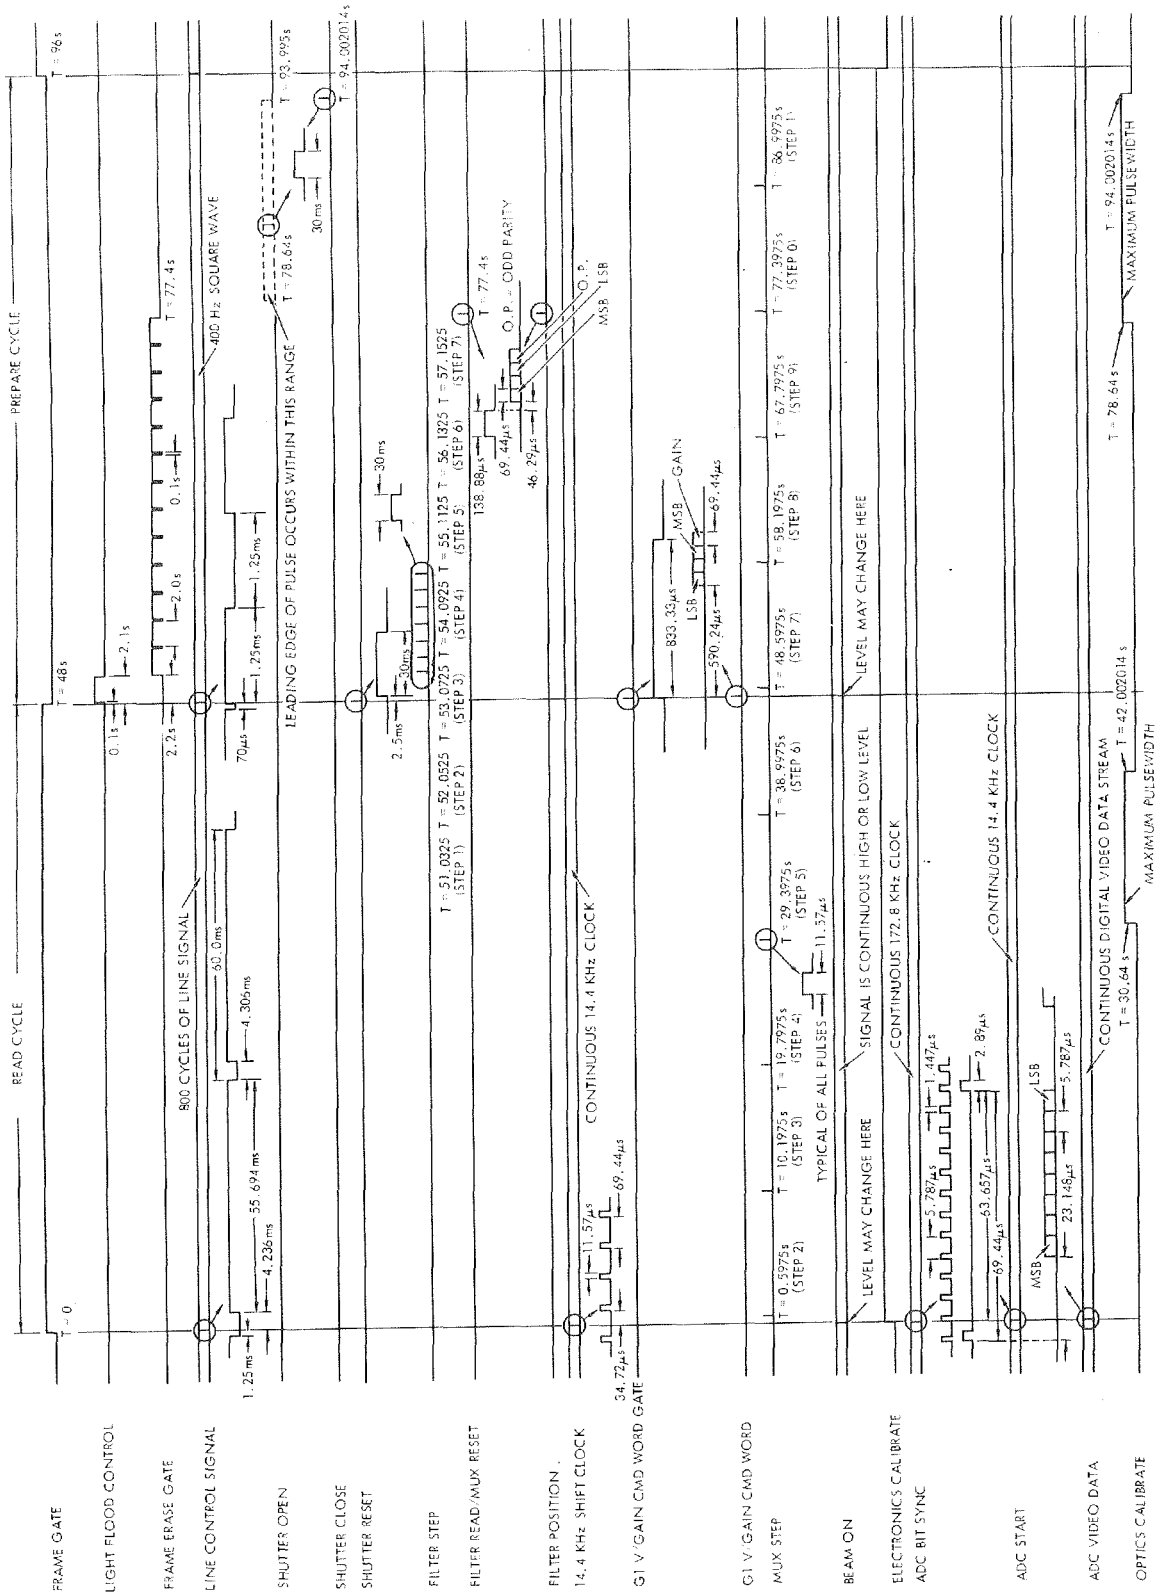 READ CYCLE
PREPARE CYCLE
FRAME GATE
T = 0
T = 48s
T = 96s
LIGHT FLOOD CONTROL
0.1s
2.1s
FRAME ERASE GATE
2.2s
2.0s
0.1s
T = 77.4s
LINE CONTROL SIGNAL
800 CYCLES OF LINE SIGNAL
400 Hz SQUARE WAVE
1.25ms
4.236ms
55.694ms
4.306ms
60.0ms
70µs
1.25ms
1.25ms
SHUTTER OPEN
LEADING EDGE OF PULSE OCCURS WITHIN THIS RANGE
T = 78.64s
T = 93.995s
30ms
SHUTTER CLOSE
T = 94.002014s
SHUTTER RESET
2.5ms
30ms
30ms
FILTER STEP
T = 51.0325 T = 52.0525 T = 53.0725 T = 54.0925 T = 55.1125 T = 56.1325 T = 57.1525
(STEP 1) (STEP 2) (STEP 3) (STEP 4) (STEP 5) (STEP 6) (STEP 7)
FILTER READ/MUX RESET
T = 77.4s
138.88µs
69.44µs
46.29µs
O.P. = ODD PARITY
O.P.
MSB LSB
FILTER POSITION
14.4 KHz SHIFT CLOCK
CONTINUOUS 14.4 KHz CLOCK
11.57µs
34.72µs
69.44µs
G1 V/GAIN CMD WORD GATE
833.33µs
G1 V/GAIN CMD WORD
LSB
MSB
GAIN
590.24µs
69.44µs
MUX STEP
T = 0.5975s
(STEP 2)
T = 10.1975s
(STEP 3)
T = 19.7975s
(STEP 4)
T = 29.3975s
(STEP 5)
T = 38.9975s
(STEP 6)
T = 48.5975s
(STEP 7)
T = 58.1975s
(STEP 8)
T = 67.7975s
(STEP 9)
T = 77.3975s
(STEP 0)
T = 86.9975s
(STEP 1)
TYPICAL OF ALL PULSES
11.57µs
BEAM ON
LEVEL MAY CHANGE HERE
SIGNAL IS CONTINUOUS HIGH OR LOW LEVEL
LEVEL MAY CHANGE HERE
ELECTRONICS CALIBRATE
ADC BIT SYNC
CONTINUOUS 172.8 KHz CLOCK
5.787µs
1.447µs
ADC START
CONTINUOUS 14.4 KHz CLOCK
63.657µs
2.89µs
69.44µs
ADC VIDEO DATA
MSB
LSB
23.148µs
5.787µs
CONTINUOUS DIGITAL VIDEO DATA STREAM
OPTICS CALIBRATE
T = 30.64s
T = 42.002014s
MAXIMUM PULSEWIDTH
T = 78.64s
T = 94.002014s
MAXIMUM PULSEWIDTH